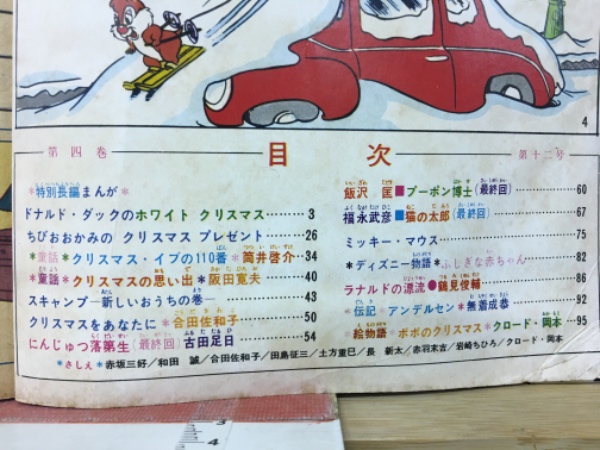 4
第四巻
目次
第十二号
*特別長編まんが*
ドナルド・ダックのホワイト クリスマス………3
ちびおおかみの クリスマス プレゼント………26
*童話*クリスマス・イブの110番*筒井啓介……34
*童話*クリスマスの思い出*阪田寛夫………40
スキャンプ―新しいおうちの巻―………43
クリスマスをあなたに*合田佐和子………50
にんじゅつ落第生(最終回)古田足日………54
飯沢 匡■プーポン博士(最終回)………60
福永武彦■猫の太郎(最終回)………67
ミッキー・マウス………75
*ディズニー物語*ふしぎな赤ちゃん………82
ラナルドの漂流●鶴見俊輔………86
*伝記*アンデルセン*無着成恭………92
*絵物語*ポポのクリスマス*クロード・岡本……95
*さしえ*赤坂三好/和田 誠/合田佐和子/田島征三/土方重巳/長 新太/赤羽末吉/岩崎ちひろ/クロード・岡本
3
4